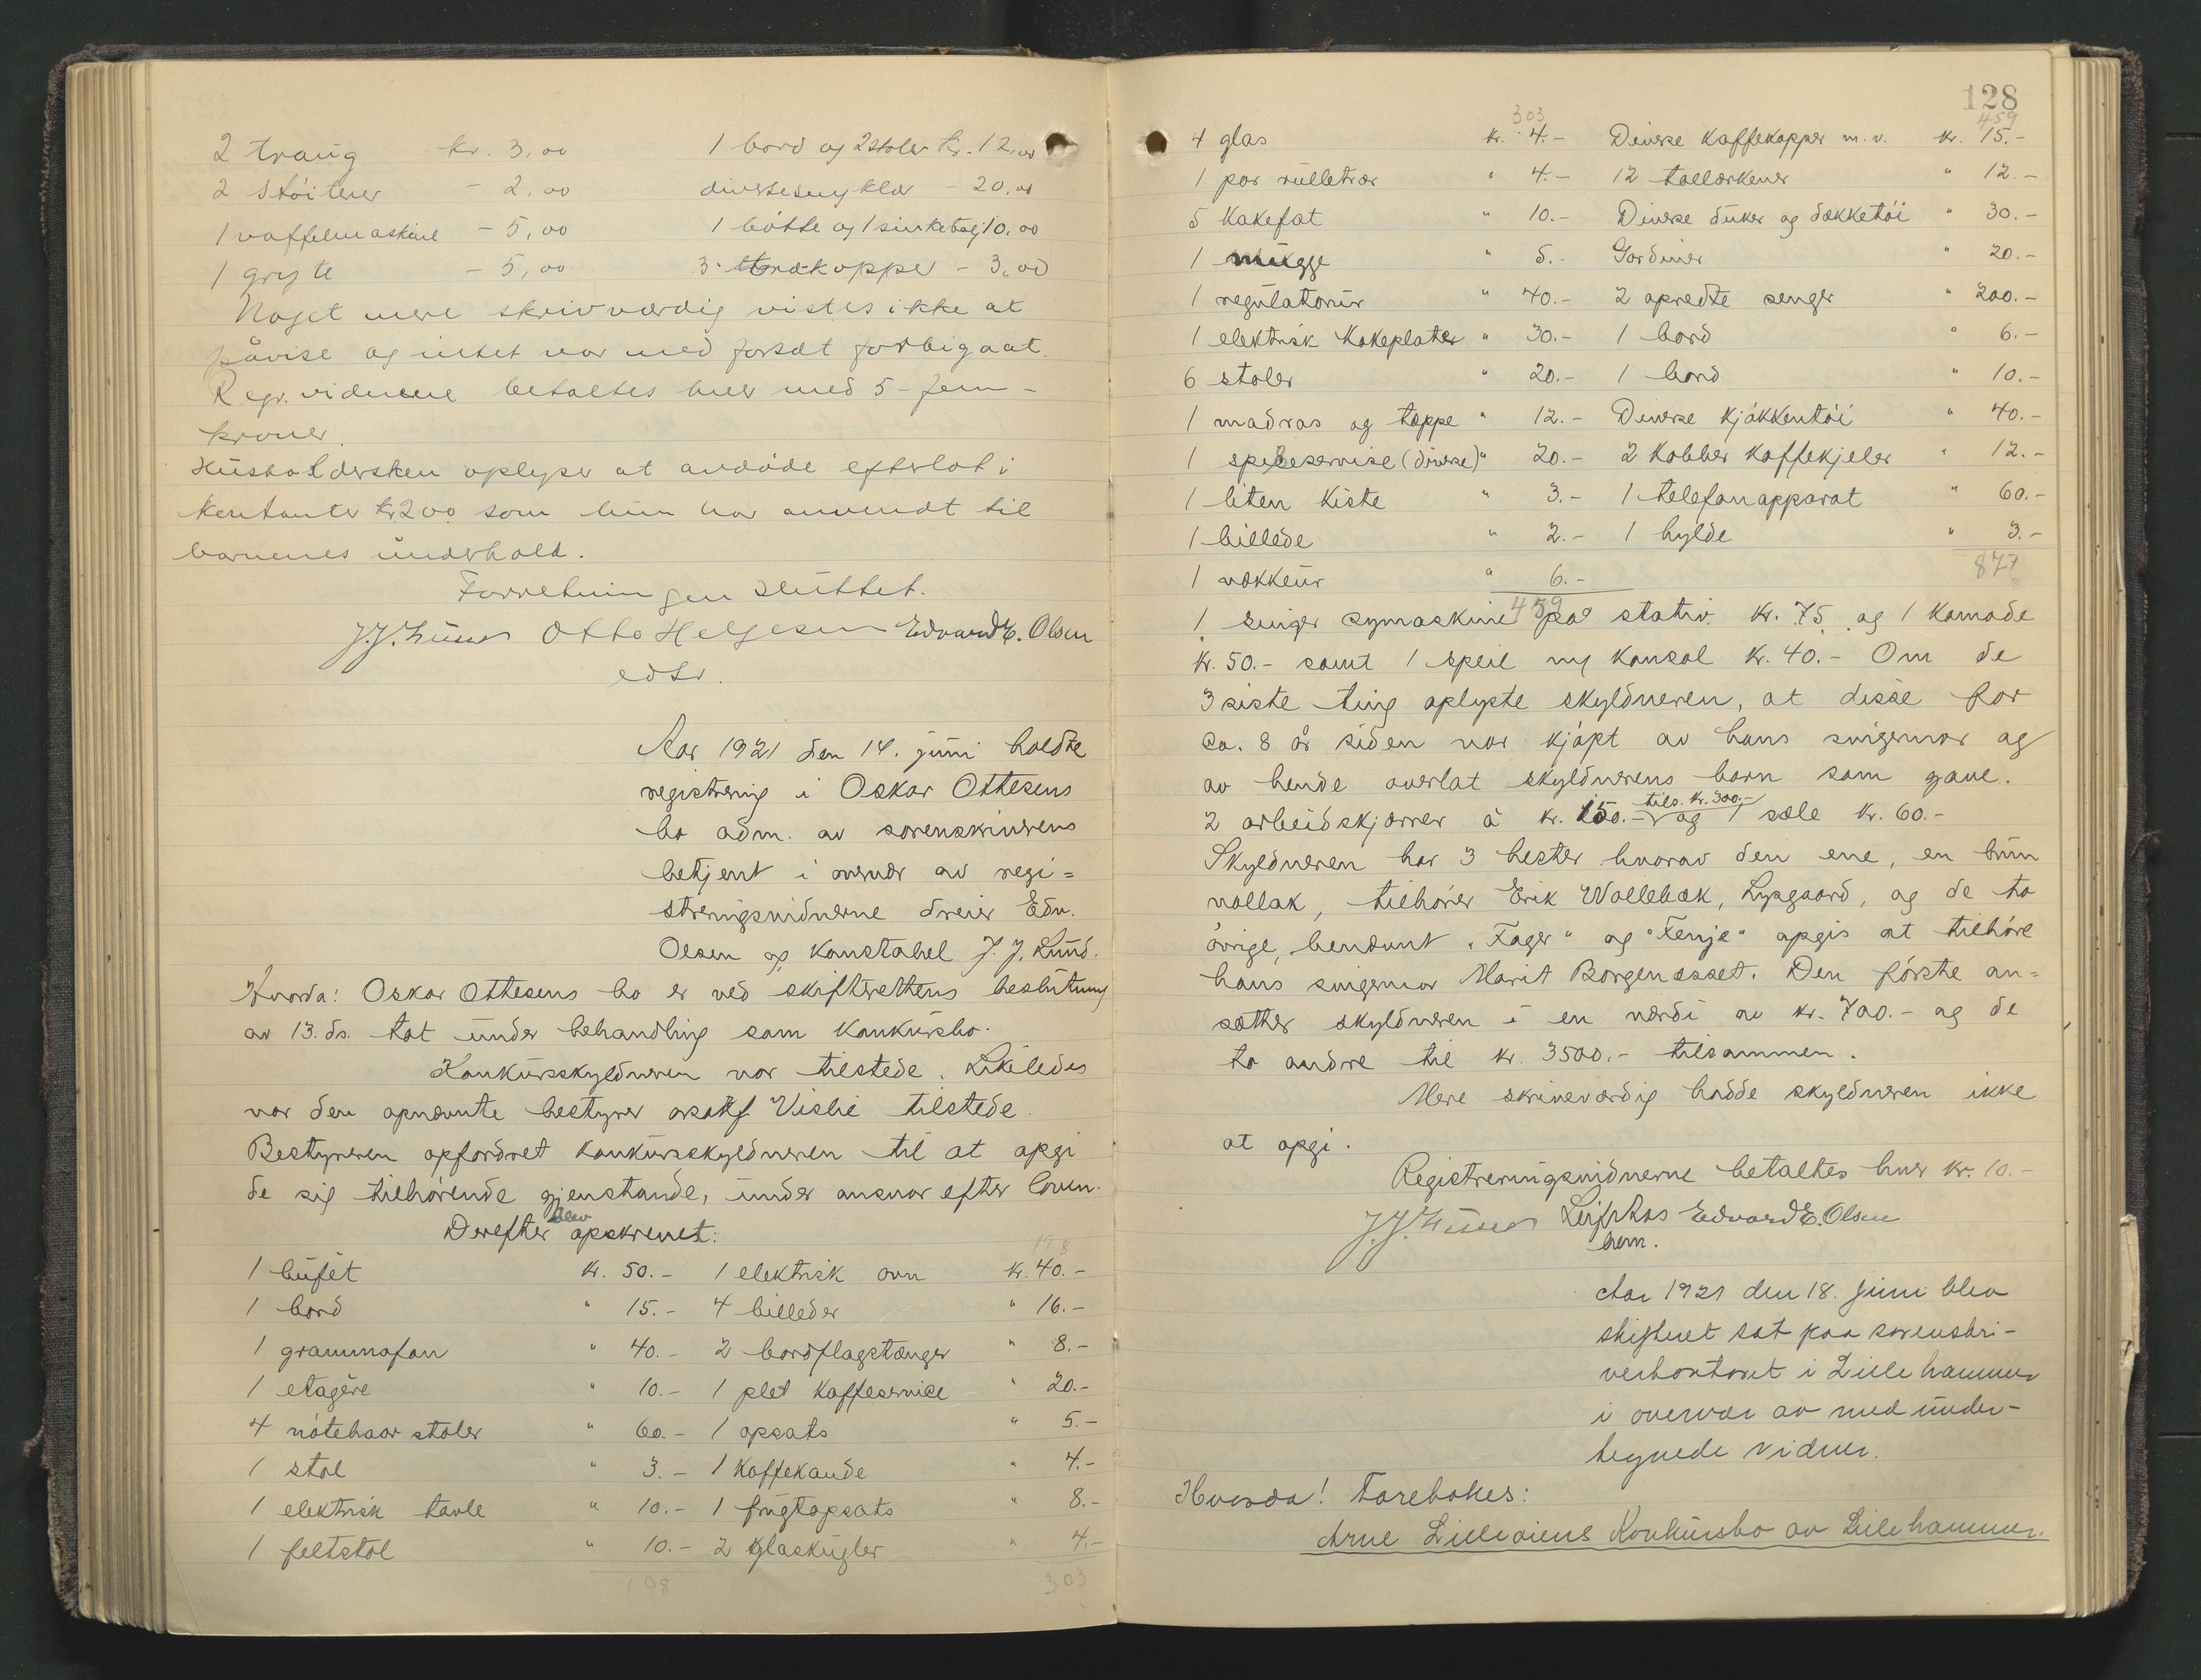 2 traug kr. 3,00 1 bord og 2 stoler kr. 12,00
2 stöitener - 2,00 diverse smykker - 20,00
1 vaffelmaskine - 5,00 1 bötte og 1 sinkebalj 10,00
1 gryte - 5,00 3 trækopper - 3,00
Noget mere skrivværdig vistes ikke at
påvise og intet var med forsæt forbigaat.
Regr. vidnene betaltes hver med 5 - fem -
kroner.
Husholdersken oplyser at avdöde efterlot i
kontanter kr 200 som hun har anvendt til
barnenes underhold.
Forretningen sluttet.
J.J. Lund Otto Helgesen Edvard E. Olsen
edsv.
Aar 1921 den 14. juni holdtes
registrering i Oskar Ottesens
bo adm. av sorenskriverens
betjent i overvær av regi=
streringsvidnerne dreier Edv.
Olsen og konstabel J. J. Lund.
Hvorda: Oskar Ottesens bo er ved skifterettens beslutning
av 13. ds. tat under behandling som konkursbo.
Konkursskyldneren var tilstede. Likeledes
var den opnævnte bestyrer orsakf. Vislie tilstede.
Bestyreren opfordret konkursskyldneren til at opgi
de sig tilhörende gjenstande, under ansvar efter loven.
Derefter blev opskrevet:
198
1 büfet kr. 50.- 1 elektrisk ovn kr. 40.-
1 bord " 15.- 4 billeder " 16.-
1 grammofon " 40.- 2 bordflagstænger " 8.-
1 etagère " 10.- 1 plet kaffeservice " 20.-
4 nötehaar stoler " 60.- 1 opsats " 5.-
1 stol " 3.- 1 kaffekande " 4.-
1 elektrisk tavle " 10.- 1 frugtopsats " 8.-
1 feltstol " 10.- 2 glaskugler " 4.-
198 303
128
303 459
4 glas kr. 4.- Diverse kaffekopper m. v. kr. 15.-
1 par rulletrær " 4.- 12 tallærkener " 12.-
5 kakefat " 10.- Diverse duker og dækketöi " 30.-
1 mugge " 5.- Gardiner " 20.-
1 regulatorur " 40.- 2 opredte senger " 200.-
1 elektrisk kokeplater " 30.- 1 bord " 6.-
6 stoler " 20.- 1 bord " 10.-
1 madras og tæppe " 12.- Diverse kjökkentöi " 40.-
1 spiseservise (diverse) " 20.- 2 kobber kaffekjeler " 12.-
1 liten kiste " 3.- 1 telefonapparat " 60.-
1 billede " 2.- 1 hylde " 3.-
1 vækkeur " 6.- 877
459
1 singer symaskine på stativ kr. 75 og 1 komode
kr. 50.- samt 1 speil m/ konsol kr. 40.- Om de
3 siste ting oplyste skyldneren, at disse for
ca. 8 år siden var kjöpt av hans svigermor og
av hende overlat skyldnerens barn som gave.
2 arbeidskjærrer à kr. 150.- tils. kr. 300,- og 1 sæle kr. 60.-
Skyldneren har 3 hester hvorav den ene, en brun
vallak, tilhörer Erik Wallebæk, Lysgaard, og de to
övrige, benævnt "Fager" og "Fenje" opgis at tilhöre
hans svigermor Marit Borgenæsset. Den förste an=
sætter skyldneren i en værdi av kr. 700.- og de
to andre til kr. 3500.- tilsammen.
Mere skriveværdig hadde skyldneren ikke
at opgi.
Registreringsvidnerne betaltes hver kr. 10.-
J.J. Lund Leif Aas Edvard E. Olsen
bem.
Aar 1921 den 18. juni blev
skifteret sat paa sorenskri-
verkontoret i Lillehammer
i overvær av med under-
tegnede vidner.
Hvorda! Foretokes:
Arne Lilleöiens Konkursbo av Lillehammer.